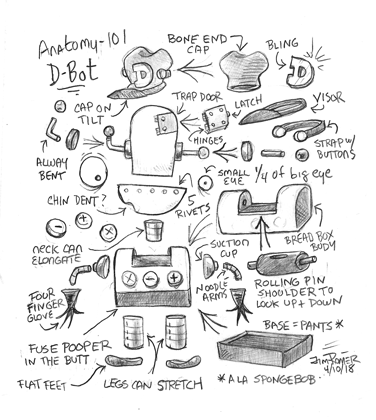 Anatomy-101
D-Bot
BONE END
CAP
BLING
D
D
CAP ON
TILT
TRAP DOOR
LATCH
VISOR
HINGES
STRAP W/
BUTTONS
ALWAY
BENT
SMALL
EYE
1/4 of big eye
CHIN DENT?
5
RIVETS
NECK CAN
ELONGATE
SUCTION
CUP
BREAD BOX
BODY
NOODLE
ARMS
ROLLING PIN
SHOULDER TO
LOOK UP + DOWN
FOUR
FINGER
GLOVE
BASE = PANTS *
FUSE POOPER
IN THE BUTT
4/10/18
FLAT FEET
LEGS CAN STRETCH
* A LA SPONGEBOB